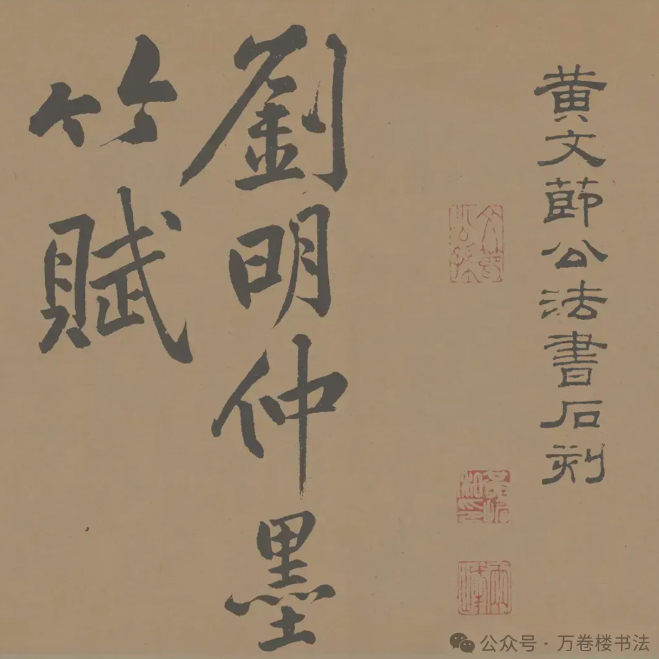 黄文節公法書石刻
劉明仲墨
竹賦
公众号·万卷楼书法